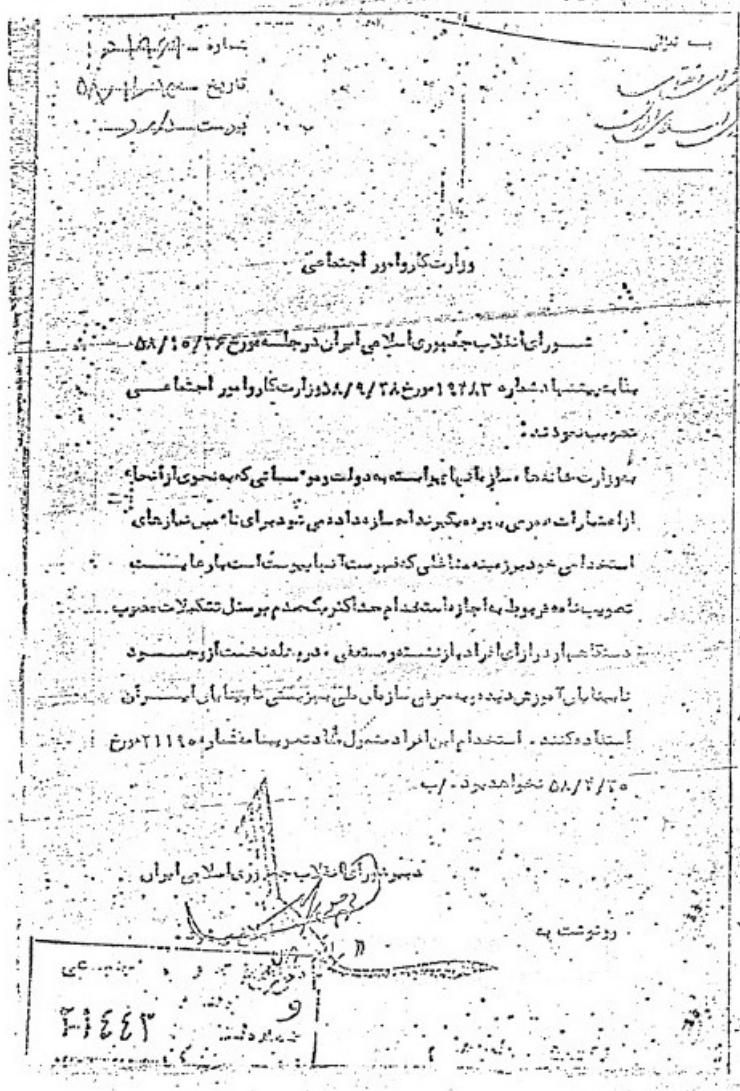 بسمه تعالی
شماره
تاریخ
پیوست دارد
وزارت کار و امور اجتماعی
شورای انقلاب جمهوری اسلامی ایران در جلسه مورخ ۵۸/۱۰/۲۶
بنا به پیشنهاد شماره ۱۹۲۸۳ مورخ ۵۸/۹/۲۸ وزارت کار و امور اجتماعی
تصویب نمودند :
به وزارت خانه ها ، سازمانهای وابسته به دولت و موسساتی که به نحوی از انحاء
از اعتبارات عمومی بهره میگیرند اجازه داده می شود برای تامین نیازهای
استخدامی خود در زمینه مشاغلی که فهرست آنها پیوست است با رعایت
تصویب نامه مربوط به اجازه استخدام حداکثر یکصدم پرسنل تشکیلات مصوب
دستگاهها در ازای افراد بازنشسته و مستعفی ، در وهله نخست از وجود
نابینایان آموزش دیده و به معرفی سازمان ملی بهزیستی نابینایان ایران
استفاده کنند . استخدام این افراد مشمول مفاد تصویبنامه شماره ۲۱۱۹۰ مورخ
۵۸/۴/۲۵ نخواهد بود . /ب
دبیر شورای انقلاب جمهوری اسلامی ایران
رونوشت به